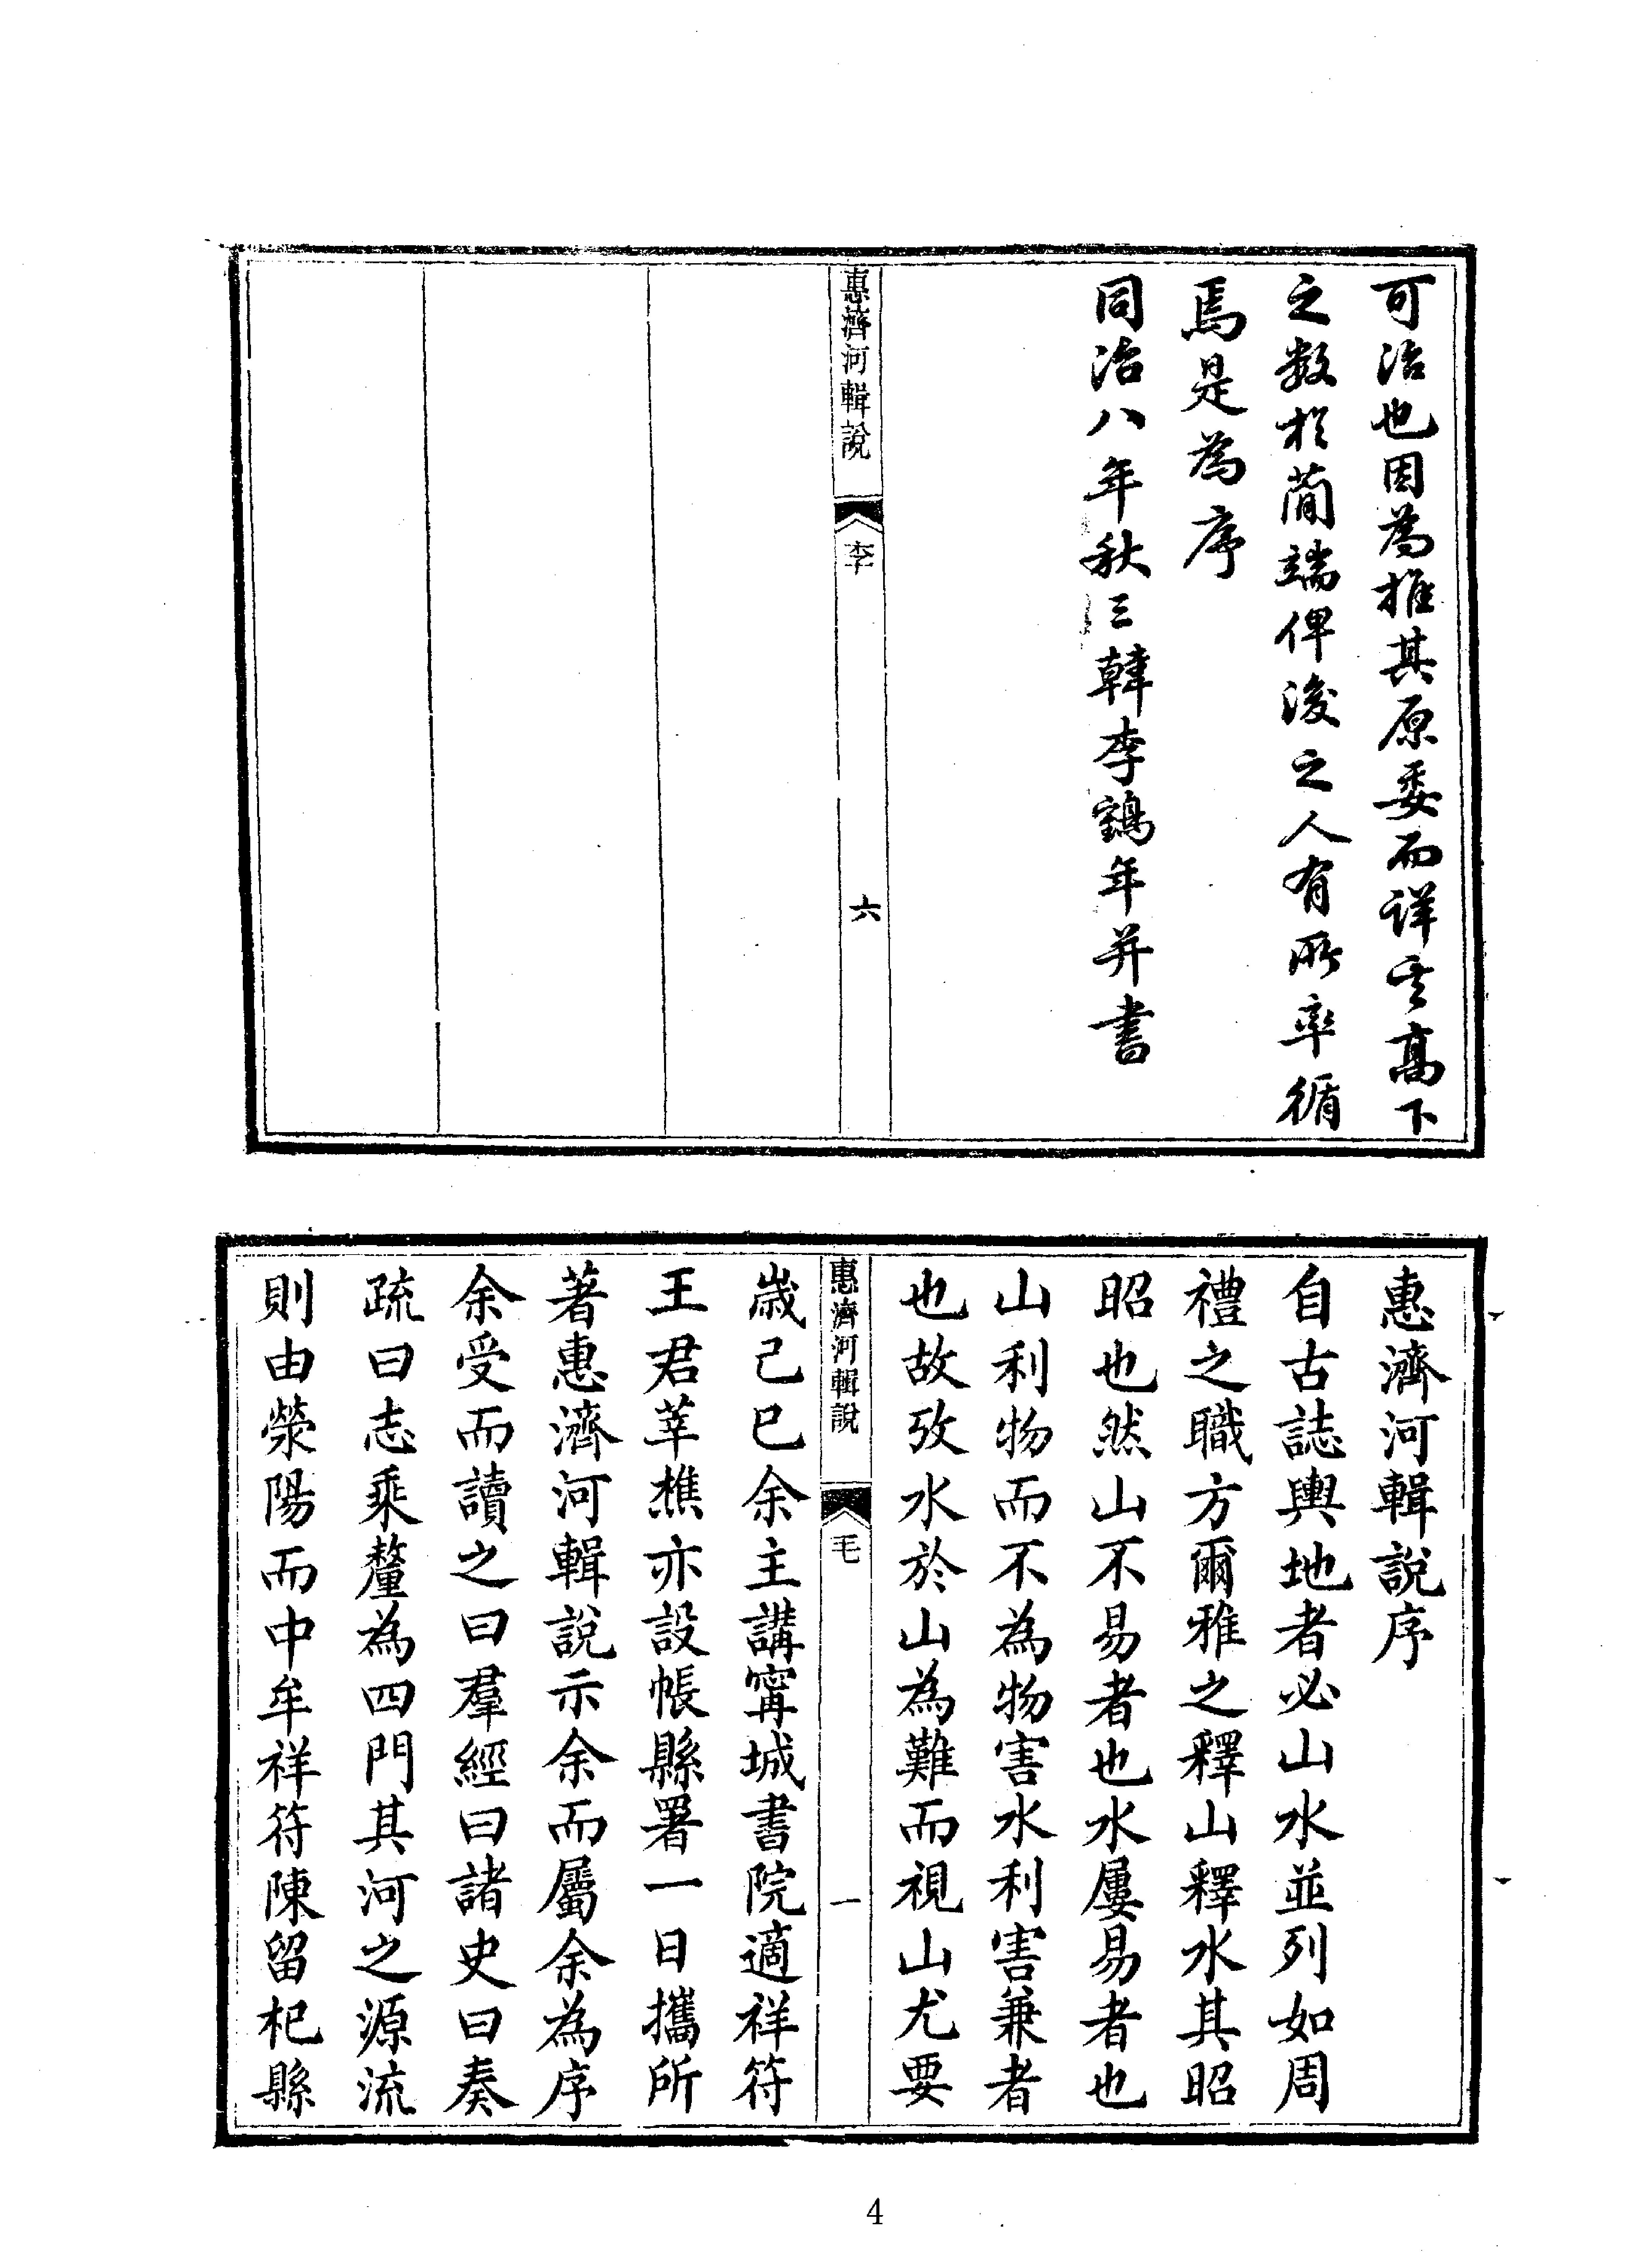 可治也因為推其原委而詳其高下
之數於蕳端俾後之人有所率循
焉是為序
同治八年秋三韓李鶴年并書
惠濟河輯說
李
六
惠濟河輯說序
自古誌輿地者必山水並列如周
禮之職方爾雅之釋山釋水其昭
昭也然山不易者也水屢易者也
山利物而不為物害水利害兼者
也故攷水於山為難而視山尤要
惠濟河輯說
毛
一
歲己巳余主講寗城書院適祥符
王君莘樵亦設帳縣署一日攜所
著惠濟河輯說示余而屬余為序
余受而讀之曰羣經曰諸史曰奏
疏曰志乘釐為四門其河之源流
則由滎陽而中牟祥符陳留杞縣
4